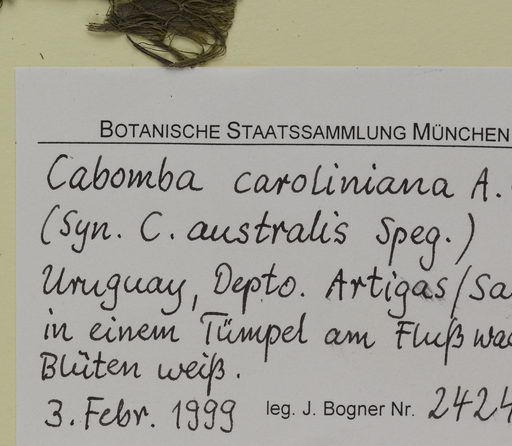 BOTANISCHE STAATSSAMMLUNG MÜNCHEN
Cabomba caroliniana A.
(Syn. C. australis Speg.)
Uruguay, Depto. Artigas/Sa
in einem Tümpel am Fluß wac
Blüten weiß.
3. Febr. 1999 leg. J. Bogner Nr. 2424